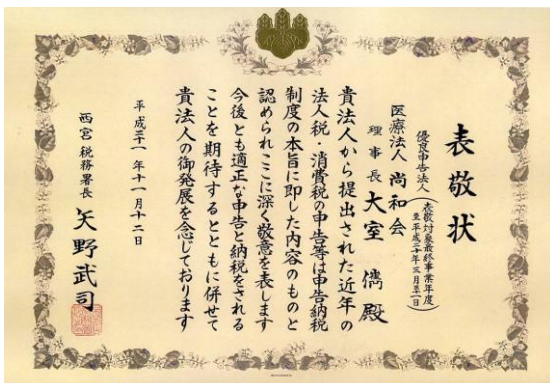 表敬状
優良申告法人
(表敬対象最終事業年度
至平成二十年三月三十一日)
医療法人 尚和会
理事長 大室 儁 殿
貴法人から提出された近年の
法人税・消費税の申告等は申告納税
制度の本旨に即した内容のものと
認められここに深く敬意を表します
今後とも適正な申告と納税をされる
ことを期待するとともに併せて
貴法人の御発展を念じております
平成二十一年十一月十二日
西宮税務署長 矢野武司